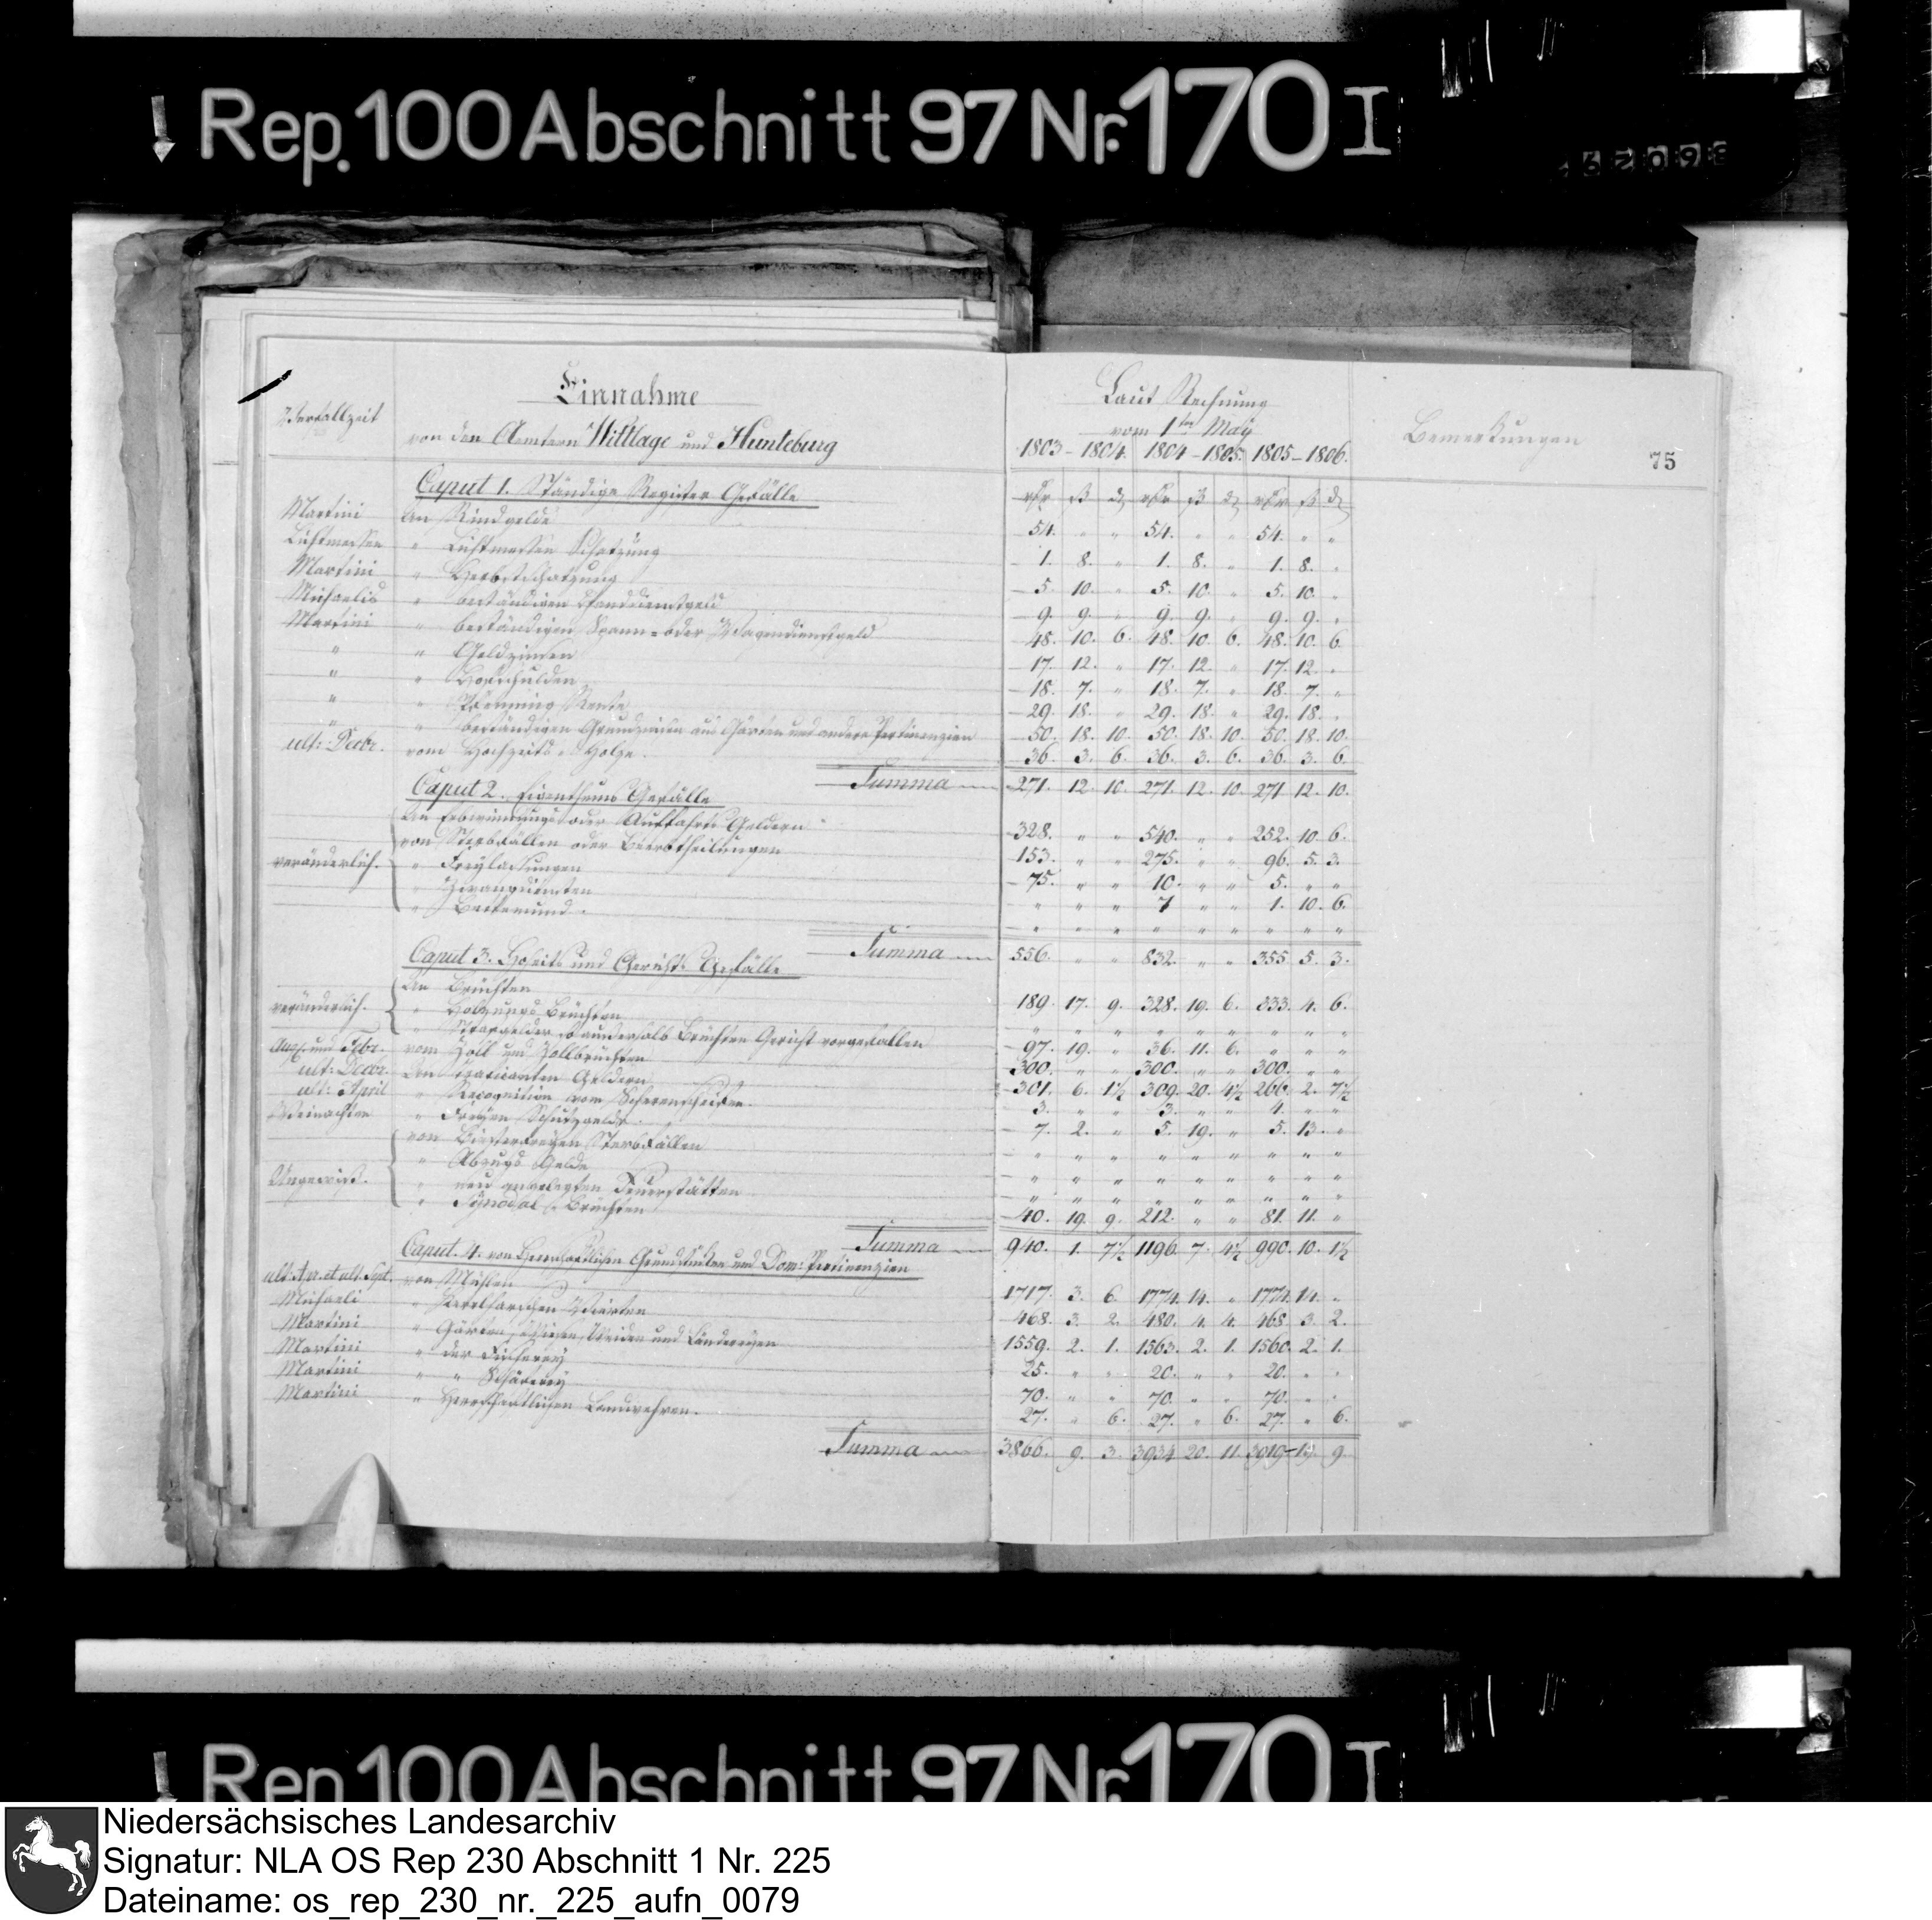 Rep. 100 Abschnitt 97 Nr. 170 I
Einnahme
von den Aemtern Wittlage und Hunteburg
Verfallzeit
Laut Rechnung
vom 1ten May
1803-1804. 1804-1805. 1805-1806.
Bemerkungen
75
Caput 1. Ständige Register Gefälle
Martini An Rindgelde 54. " " 54. " " 54. " "
Lichtmessen " Lichtmessen Schatzung 1. 8. " 1. 8. " 1. 8. "
Martini " Herbstschatzung 5. 10. " 5. 10. " 5. 10. "
Michaelis " beständigen Handdienstgeld 9. 9. " 9. 9. " 9. 9. "
Martini " beständigen Spann= oder Wagendienstgeld 48. 10. 6. 48. 10. 6. 48. 10. 6.
" " Geldzinsen 17. 12. " 17. 12. " 17. 12. "
" " 18. 7. " 18. 7. " 18. 7. "
" " Pfenning Rente 29. 18. " 29. 18. " 29. 18. "
" " beständigen Grundzinsen aus Gärten und andere Pertinenzien 50. 18. 10. 50. 18. 10. 50. 18. 10.
ult: Decbr. vom Hochzeits Holze. 36. 3. 6. 36. 3. 6. 36. 3. 6.
Summa 271. 12. 10. 271. 12. 10. 271 12. 10.
Caput 2. Eigenthums Gefälle
An Erbwinnungs oder Auffahrts Geldern 328. " " 540. " " 252. 10. 6.
von Sterbfällen oder Beerbtheilungen 153. " " 275. " " 96. 5. 3.
veränderlich. " Freylassungen 75. " " 10. " " 5. " "
" Zwangdiensten " " " 7 " " 1. 10. 6.
" Bedemund. " " " " " " " " "
Summa 556. " " 832. " " 355 5. 3.
Caput 3. Hoheits und Gerichts Gefälle
An Brüchten 189. 17. 9. 328. 19. 6. 333. 4. 6.
veränderlich. " Holzungs Brüchten " " " " " " " " "
" Strafgelder so ausserhalb Brüchten Gericht vorgefallen 97. 19. " 36. 11. 6. " " "
Aug. und Febr. vom Zoll und Zollbrüchten 300. " " 300. " " 300. " "
ult: Decbr. An Geldern 301. 6. 1½ 309. 20. 4½ 266. 2. 7½
ult: April " Recognition vom Scheerenschleifen. 3. " " 3. " " 4. " "
Weinachten " Freyen Schutzgelde. 7. 2. " 5. 19. " 5. 13. "
von Biesterfreyen Sterbfällen " " " " " " " " "
" Abzugs Gelde " " " " " " " " "
Ungewiß. " neu angelegten Feuerstätten " " " " " " " " "
" Synodal Brüchten 40. 19. 9. 212. " " 81. 11. "
Summa 940. 1. 7½ 1196. 7. 4½ 990. 10. 1½
Caput. 4. von Herrschaftlichen Grundstücken und Dom: Pertinenzien
ult. Apr. et ult. Sept. von Mühlen 1717. 3. 6. 1774. 14. " 1774. 14. "
Michaeli " 468. 3. 2. 480. 4. 4. 468. 3. 2.
Martini " Gärten, Wiesen, Weiden und Ländereyen 1559. 2. 1. 1563. 2. 1. 1560. 2. 1.
Martini " der Fischerey 25. " " 20. " " 20. " "
Martini " " Schäferey 70. " " 70. " " 70. " "
Martini " Herrschaftlichen Landwehren. 27. " 6. 27. " 6. 27. " 6.
Summa 3866. 9. 3. 3934 20. 11. 9.
Rep. 100 Abschnitt 97 Nr. 170 I
Niedersächsisches Landesarchiv
Signatur: NLA OS Rep 230 Abschnitt 1 Nr. 225
Dateiname: os_rep_230_nr._225_aufn_0079